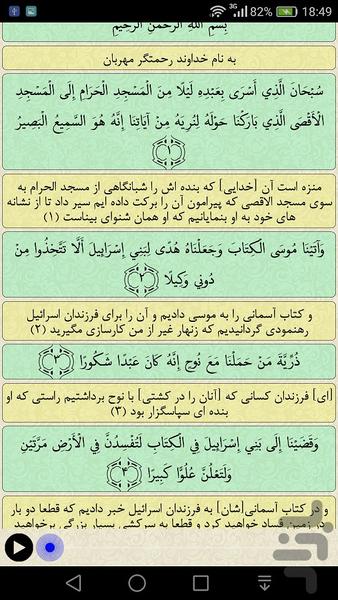 3G 82% 18:49
بِسْمِ اللَّهِ الرَّحْمَنِ الرَّحِيمِ
به نام خداوند رحمتگر مهربان
سُبْحَانَ الَّذِي أَسْرَى بِعَبْدِهِ لَيْلًا مِنَ الْمَسْجِدِ الْحَرَامِ إِلَى الْمَسْجِدِ
الْأَقْصَى الَّذِي بَارَكْنَا حَوْلَهُ لِنُرِيَهُ مِنْ آيَاتِنَا إِنَّهُ هُوَ السَّمِيعُ الْبَصِيرُ
﴿١﴾
منزه است آن [خدایی] که بنده اش را شبانگاهی از مسجد الحرام به
سوی مسجد الاقصی که پیرامون آن را برکت داده ایم سیر داد تا از نشانه
های خود به او بنمایانیم که او همان شنوای بیناست (۱)
وَآتَيْنَا مُوسَى الْكِتَابَ وَجَعَلْنَاهُ هُدًى لِبَنِي إِسْرَايِيلَ أَلَّا تَتَّخِذُوا مِنْ
دُونِي وَكِيلًا ﴿٢﴾
و کتاب آسمانی را به موسی دادیم و آن را برای فرزندان اسرائیل
رهنمودی گردانیدیم که زنهار غیر از من کارسازی مگیرید (۲)
ذُرِّيَّةَ مَنْ حَمَلْنَا مَعَ نُوحٍ إِنَّهُ كَانَ عَبْدًا شَكُورًا ﴿٣﴾
[ای] فرزندان کسانی که [آنان را در کشتی] با نوح برداشتیم راستی که او
بنده ای سپاسگزار بود (۳)
وَقَضَيْنَا إِلَى بَنِي إِسْرَايِيلَ فِي الْكِتَابِ لَتُفْسِدُنَّ فِي الْأَرْضِ مَرَّتَيْنِ
وَلَتَعْلُنَّ عُلُوًّا كَبِيرًا ﴿٤﴾
و در کتاب آسمانی[شان] به فرزندان اسرائیل خبر دادیم که قطعا دو بار
در زمین فساد خواهید کرد و قطعا به سرکشی بسیار بزرگی برخواهید